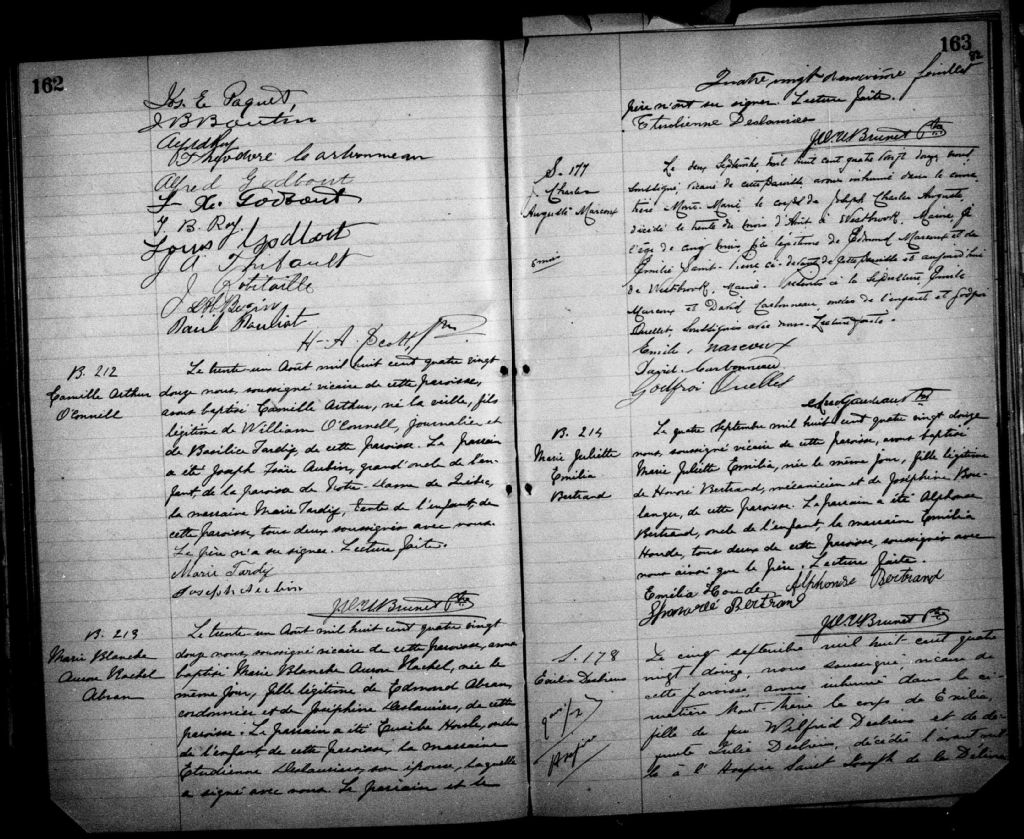 162
Jos. E. Paquet,
J B Boutin
Théodore Carbonneau
Alfred Godbout
F. X. Godbout
J. B. Roy
Louis Godbout
J A Thibault
J. Robitaille
Paul Pouliot
H-A Scott, Ptre
B. 212
Camille Arthur
O'Connell
Le trente un Août mil huit cent quatre vingt
douze nous, soussigné vicaire de cette paroisse,
avons baptisé Camille Arthur, né la veille, fils
légitime de William O'Connell, journalier, et
de Basilice Tardif, de cette paroisse. Le parrain
a été Joseph Aubin, grand'oncle de l'en-
fant de la paroisse de Notre-Dame de Québec,
la marraine Marie Tardif, tante de l'enfant, de
cette paroisse, tous deux soussignés avec nous.
Le père n'a su signer. Lecture faite.
Marie Tardif
Joseph Aubin
Brunet Ptre
B. 213
Marie Blanche
Aurore Rachel
Abran
Le trente un Août mil huit cent quatre vingt
douze, nous, soussigné vicaire de cette paroisse, avons
baptisé Marie Blanche Aurore Rachel, née le
même jour, fille légitime de Edmond Abran,
cordonnier et de Joséphine Deslauriers, de cette
paroisse. Le parrain a été Eusèbe Houle, oncle
de l'enfant, de cette paroisse, la marraine
Etudienne Deslauriers, son épouse, laquelle
a signé avec nous. Le parrain et le
163
Quatre vingt douzième feuillet
père n'ont su signer. Lecture faite.
Etudienne Deslauriers
Brunet Ptre
S. 177
J. Charles
Auguste Marcoux
5 mois
Le deux Septembre, mil huit cent quatre vingt douze nous
soussigné, vicaire de cette paroisse, avons inhumé dans le cime-
tière Mont-Marie, le corps de Joseph Charles Auguste,
décédé le trente du mois d'Août à Westbrook, Maine, à
l'âge de cinq mois, fils légitime de Edmond Marcoux et de
Emilie Saint-Pierre, ci-devant de cette paroisse et aujourd'hui
de Westbrook, Maine. Présents à la sépulture, Emile
Marcoux et David Carbonneau, oncles de l'enfant et Godfroi
Ouellet, soussignés avec nous. Lecture faite.
Emile Marcoux
David Carbonneau
Godfroi Ouellet
Gaudiaut Ptre
B. 214
Marie Juliette
Emilia
Bertrand
Le quatre Septembre mil huit cent quatre vingt douze
nous, soussigné vicaire de cette paroisse, avons baptisé
Marie Juliette Emilia, née le même jour, fille légitime
de Honoré Bertrand, mécanicien et de Joséphine Bou-
langer, de cette paroisse. Le parrain a été Alphonse
Bertrand, oncle de l'enfant la marraine Emilia
Houde, tous deux de cette paroisse, soussignés avec
nous ainsi que le père. Lecture faite.
Emilia Houde Alphonse Bertrand
Honoré Bertrand
Brunet Ptre
S. 178
Emilia
Le cinq septembre mil huit cent quatre
vingt douze, nous soussigné, vicaire de
cette paroisse, avons inhumé dans le ci-
metière Mont-Marie le corps de Emilia,
fille de feu Wilfrid et de dé-
funte Julie décédée l'avant veil-
le à l'Hospice Saint Joseph de la Délivran